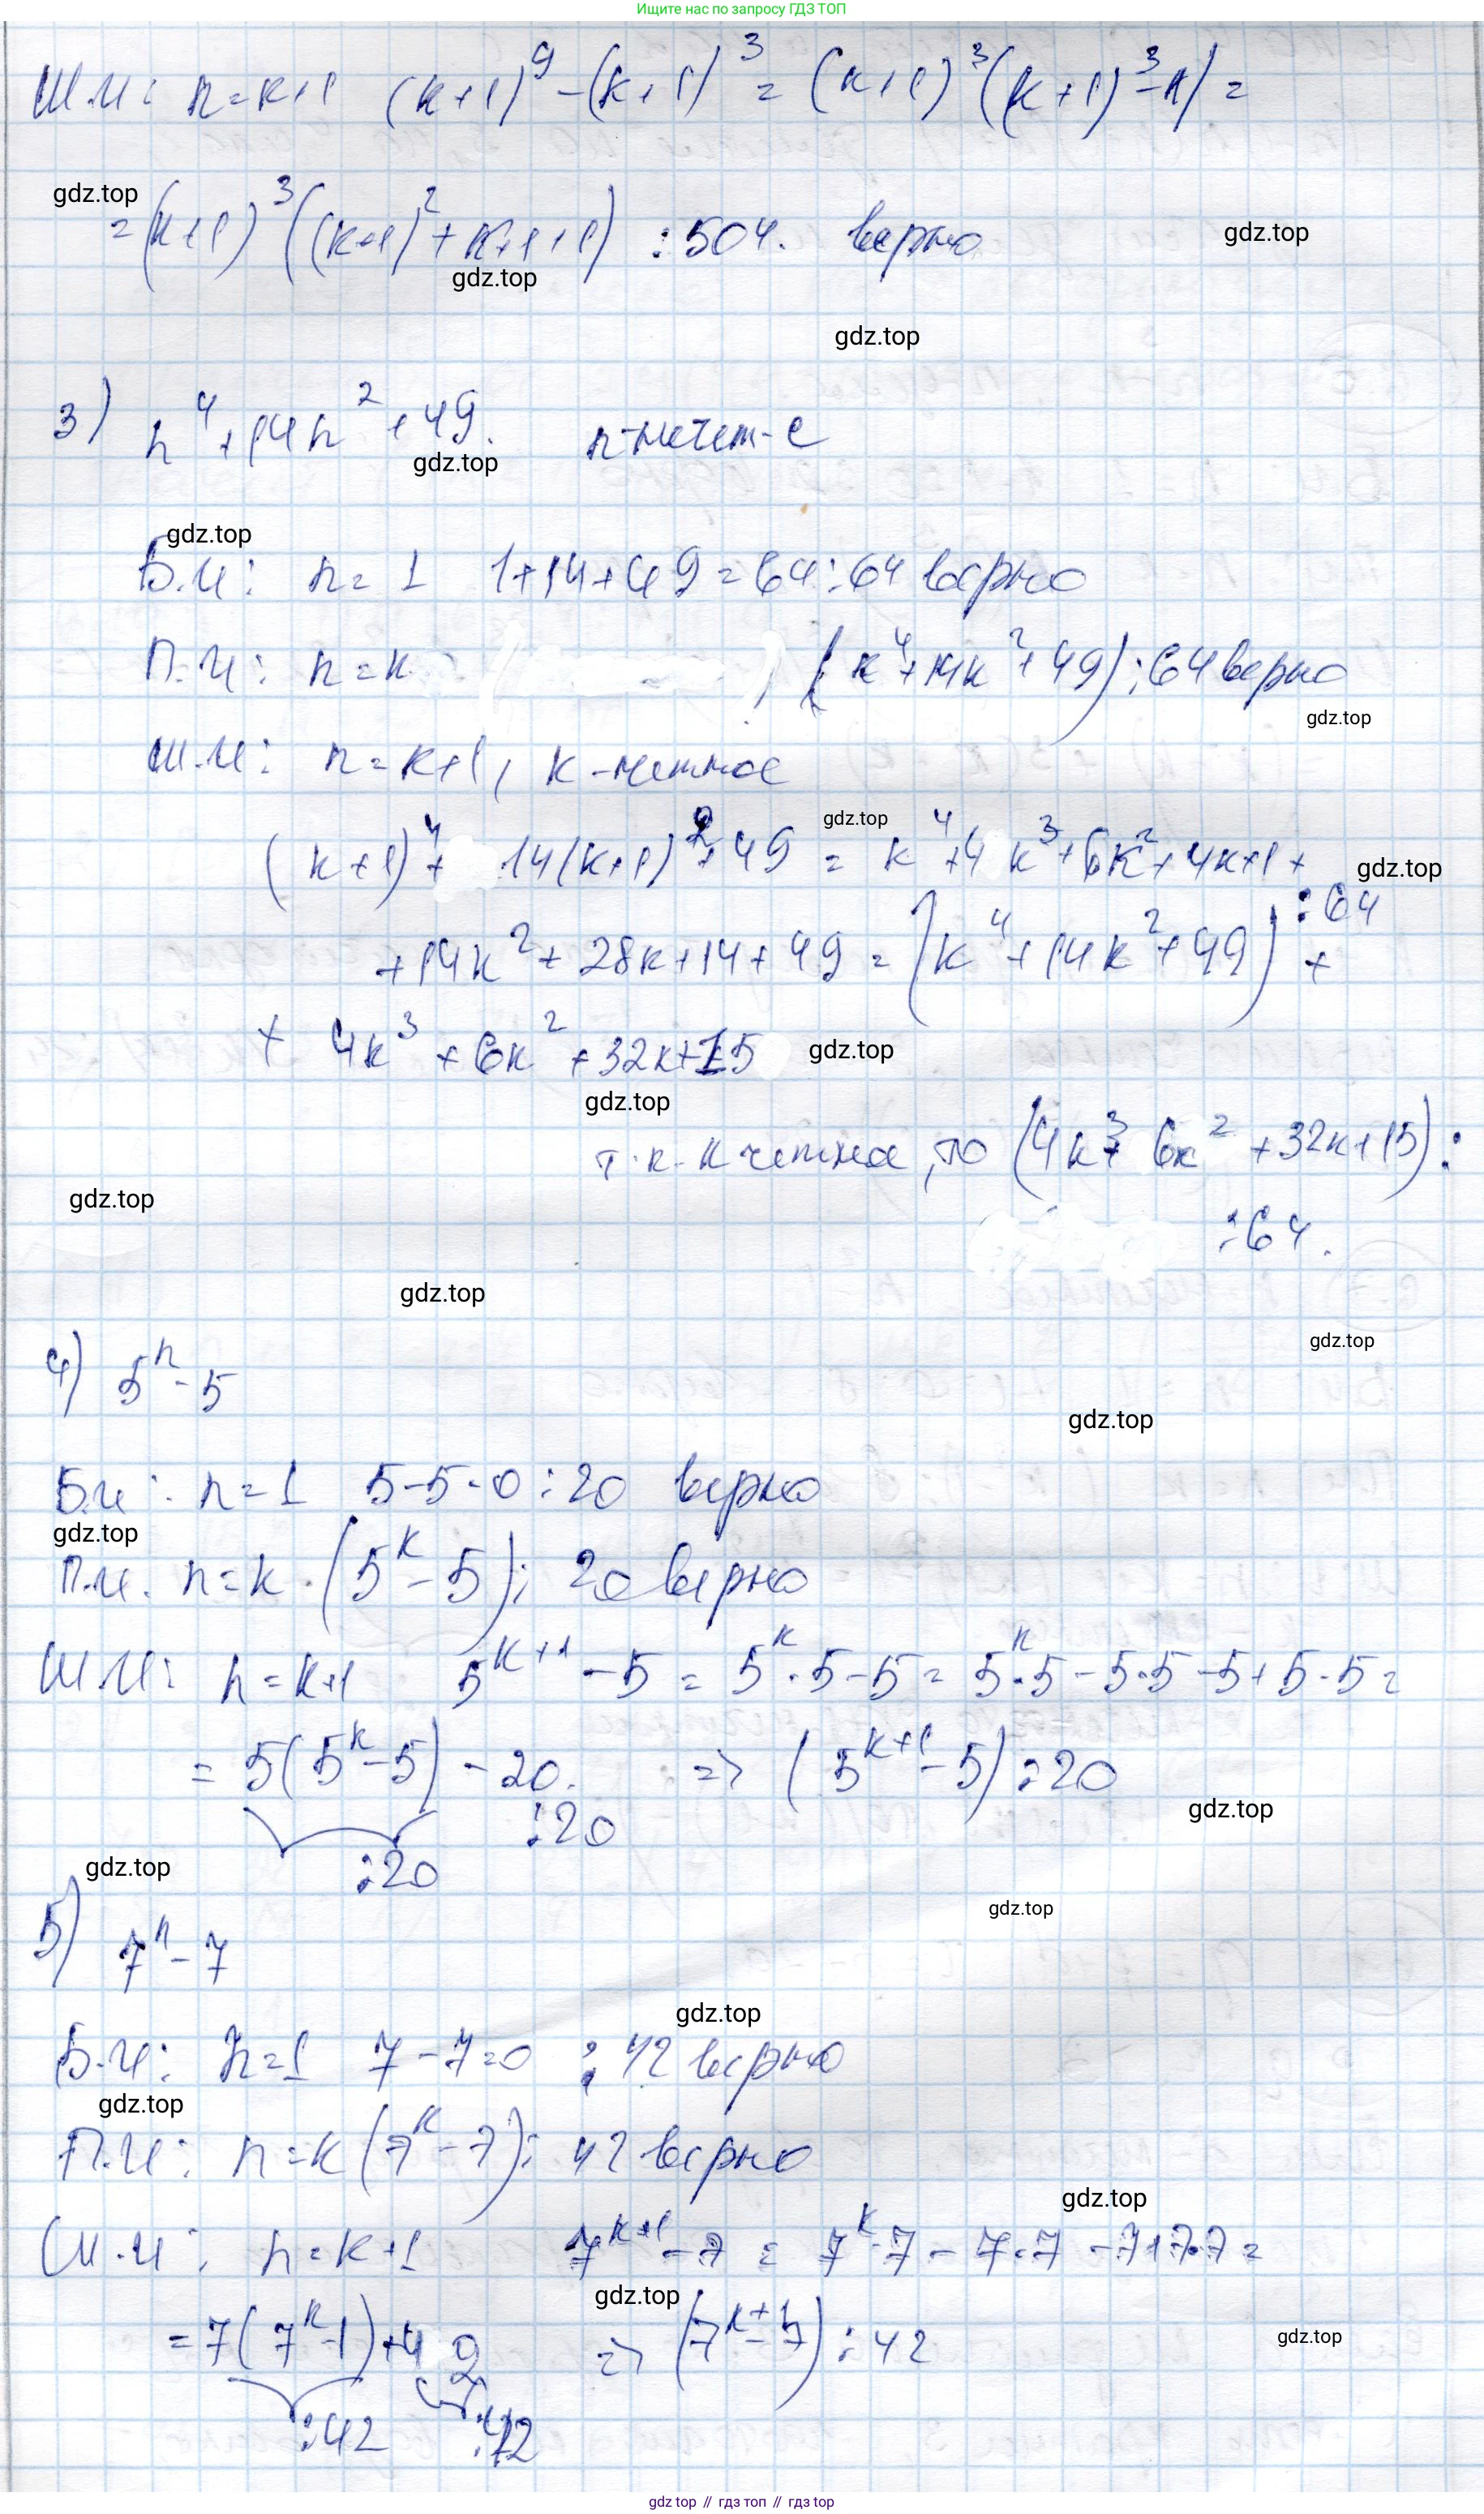 Ищите нас по запросу ГДЗ ТОП
Ш.И: n=k+1 (k+1)⁹-(k+1)³=(k+1)³((k+1)³-1)=
gdz.top
=(k+1)³((k+1)²+k+1+1)⋮504. верно
gdz.top
gdz.top
gdz.top
3) n⁴+14n²+49. n-нечет-е
gdz.top
gdz.top
Б.И: n=1 1+14+49=64⋮64 верно
П.И: n=k (k⁴+14k²+49)⋮64 верно
gdz.top
Ш.И: n=k+1, k-четное
gdz.top
(k+1)⁴+14(k+1)²+49=k⁴+4k³+6k²+4k+1+
gdz.top
+14k²+28k+14+49=(k⁴+14k²+49)⋮64+
+4k³+6k²+32k+15
gdz.top
gdz.top
т.к. k четное, то (4k³+6k²+32k+15)⋮
gdz.top
⋮64.
gdz.top
gdz.top
4) 5ⁿ-5
gdz.top
Б.И: n=1 5-5=0⋮20 верно
gdz.top
П.И. n=k.(5ᵏ-5)⋮20 верно
Ш.И: n=k+1 5ᵏ⁺¹-5=5ᵏ·5-5=5ᵏ·5-5·5-5+5·5=
=5(5ᵏ-5)-20. => (5ᵏ⁺¹-5)⋮20
gdz.top
⋮20
gdz.top
⋮20
gdz.top
5) 7ⁿ-7
gdz.top
Б.И: n=1 7-7=0⋮42 верно
gdz.top
П.И: n=k(7ᵏ-7)⋮42 верно
gdz.top
Ш.И: n=k+1 7ᵏ⁺¹-7=7ᵏ·7-7·7-7+7·7=
gdz.top
=7(7ᵏ-1)+42 => (7ᵏ⁺¹-7)⋮42
gdz.top
⋮42 ⋮42
gdz top // гдз топ // гдз top